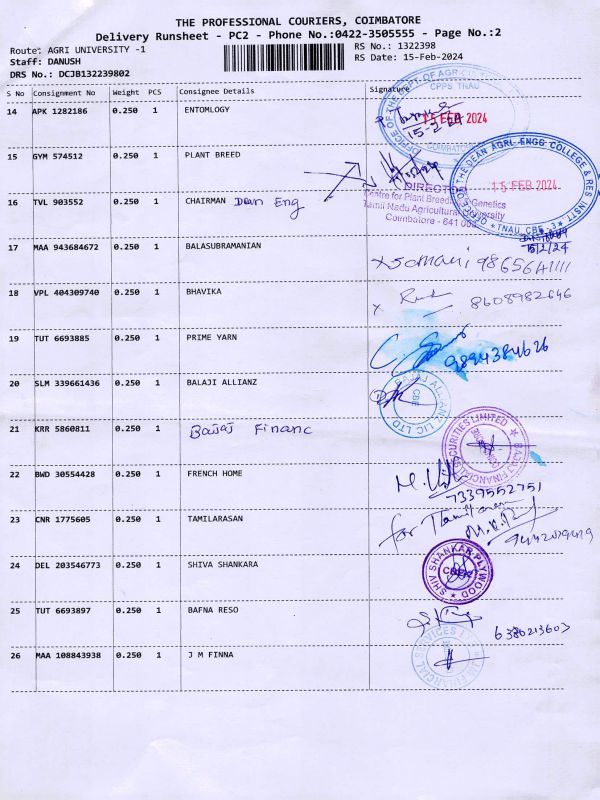 THE PROFESSIONAL COURIERS, COIMBATORE
Delivery Runsheet - PC2 - Phone No.:0422-3505555 - Page No.:2
Route: AGRI UNIVERSITY -1 RS No.: 1322398
Staff: DANUSH RS Date: 15-Feb-2024
DRS No.: DCJB132239802
S No Consignment No Weight PCS Consignee Details Signature
14 APK 1282186 0.250 1 ENTOMLOGY
OFFICE OF THE DEPT. OF AGRL.
CPPS TNAU
15 FEB 2024
15-2-24
COIMBATORE
15 GYM 574512 0.250 1 PLANT BREED
DIRECTOR
Centre for Plant Breeding & Genetics
Tamil Nadu Agricultural University
Coimbatore - 641 003
16 TVL 903552 0.250 1 CHAIRMAN Dean Eng
OFFICE OF THE DEAN AGRL. ENGG COLLEGE & RES INSTT
15 FEB 2024
TNAU, CBE-3
15/2/24
17 MAA 943684672 0.250 1 BALASUBRAMANIAN
x somani 9865641111
18 VPL 404309740 0.250 1 BHAVIKA
x 8608982646
19 TUT 6693885 0.250 1 PRIME YARN
9894384626
20 SLM 339661436 0.250 1 BALAJI ALLIANZ
BAJAJ ALLIANZ LIC LTD
CBE
21 KRR 5860811 0.250 1 Bajaj Financ
BAJAJ FINANCIAL SECURITIES LIMITED
22 BWD 30554428 0.250 1 FRENCH HOME
7339552751
23 CNR 1775605 0.250 1 TAMILARASAN
for Tamilarasan
9442029419
24 DEL 203546773 0.250 1 SHIVA SHANKARA
SHIV SHANKAR PLYWOOD
25 TUT 6693897 0.250 1 BAFNA RESO
6380213603
26 MAA 108843938 0.250 1 J M FINNA
FINANCIAL SERVICES